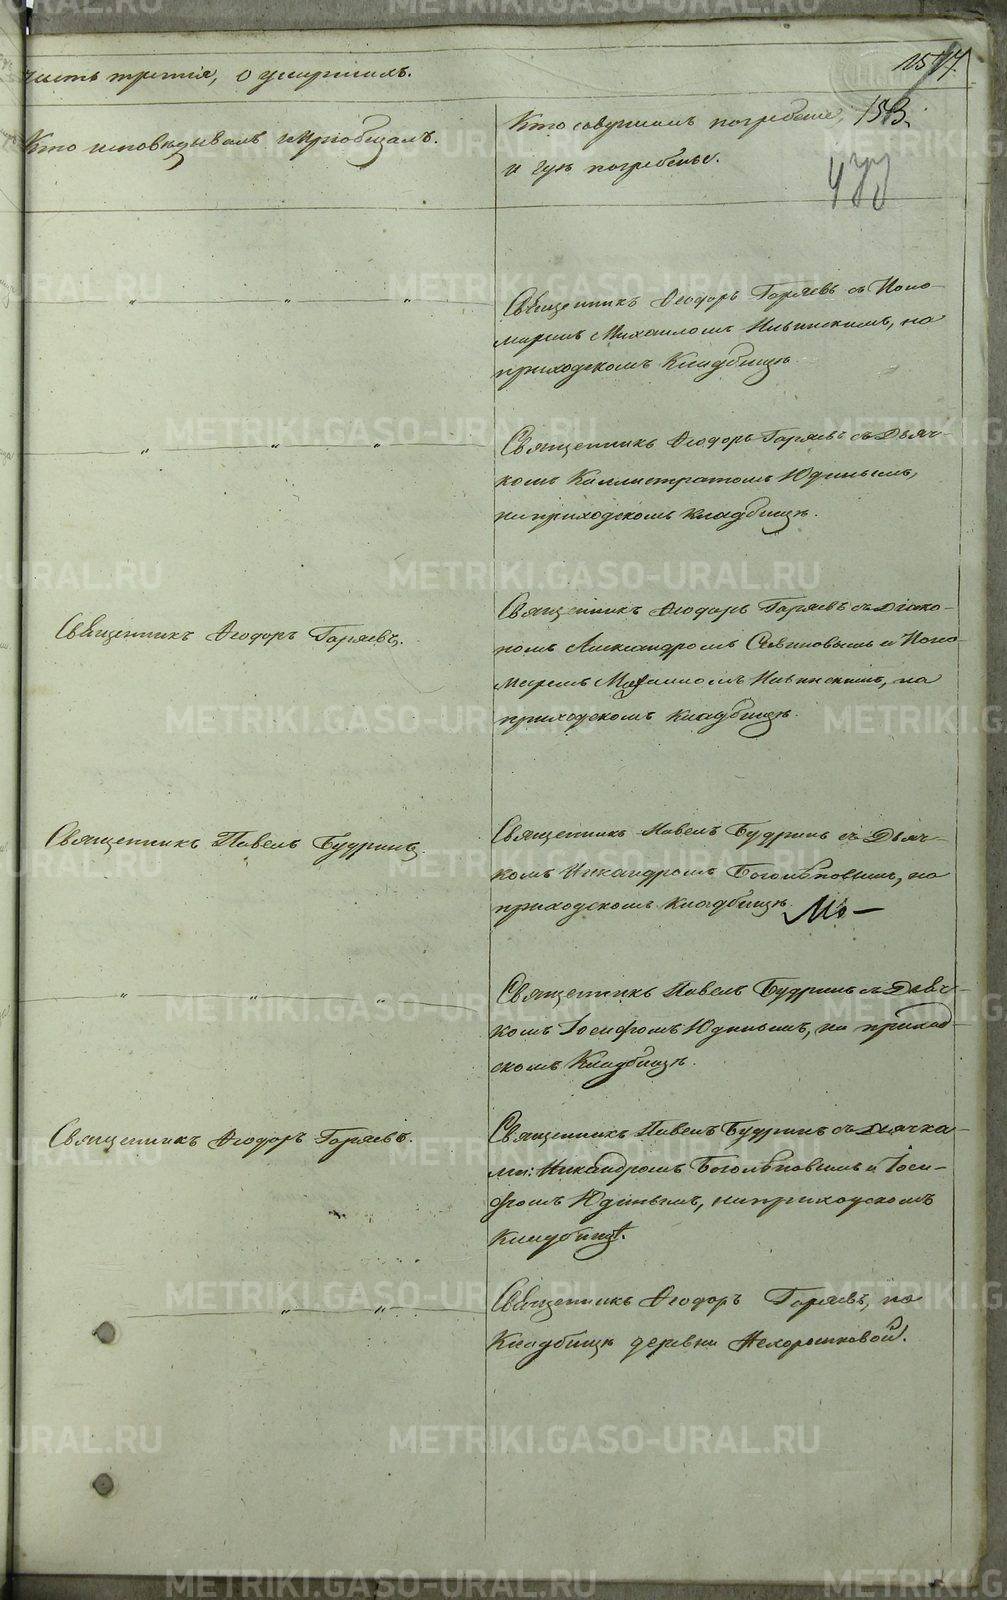 часть третія, о умершихъ.
153.
477
Кто исповѣдывалъ и пріобщалъ.
Кто совершалъ погребеніе,
и гдѣ погребены.
Священникъ Ѳеодоръ Горяевъ съ Поно-
маремъ Михаиломъ Ильинскимъ, на
приходскомъ Кладбищѣ.
Священникъ Ѳеодоръ Горяевъ съ Дьяч-
комъ Каллистратомъ Юдинымъ,
на приходскомъ кладбищѣ.
Священникъ Ѳеодоръ Горяевъ.
Священникъ Ѳеодоръ Горяевъ съ Діако-
номъ Александромъ Савиновымъ и Поно-
маремъ Михаиломъ Ильинскимъ, на
приходскомъ кладбищѣ.
Священникъ Павелъ Будринъ.
Священникъ Павелъ Будринъ съ Дьяч-
комъ Никандромъ Боголѣповымъ, на
приходскомъ кладбищѣ.
Священникъ Павелъ Будринъ съ Дьяч-
комъ Іосифомъ Юдинымъ, на приход-
скомъ Кладбищѣ.
Священникъ Ѳеодоръ Горяевъ.
Священникъ Павелъ Будринъ съ Дьячка-
ми: Никандромъ Боголѣповымъ и Іоси-
фомъ Юдинымъ, на приходскомъ
Кладбищѣ.
Священникъ Ѳеодоръ Горяевъ, на
Кладбищѣ деревни Нехорошковой.
METRIKI.GASO-URAL.RU